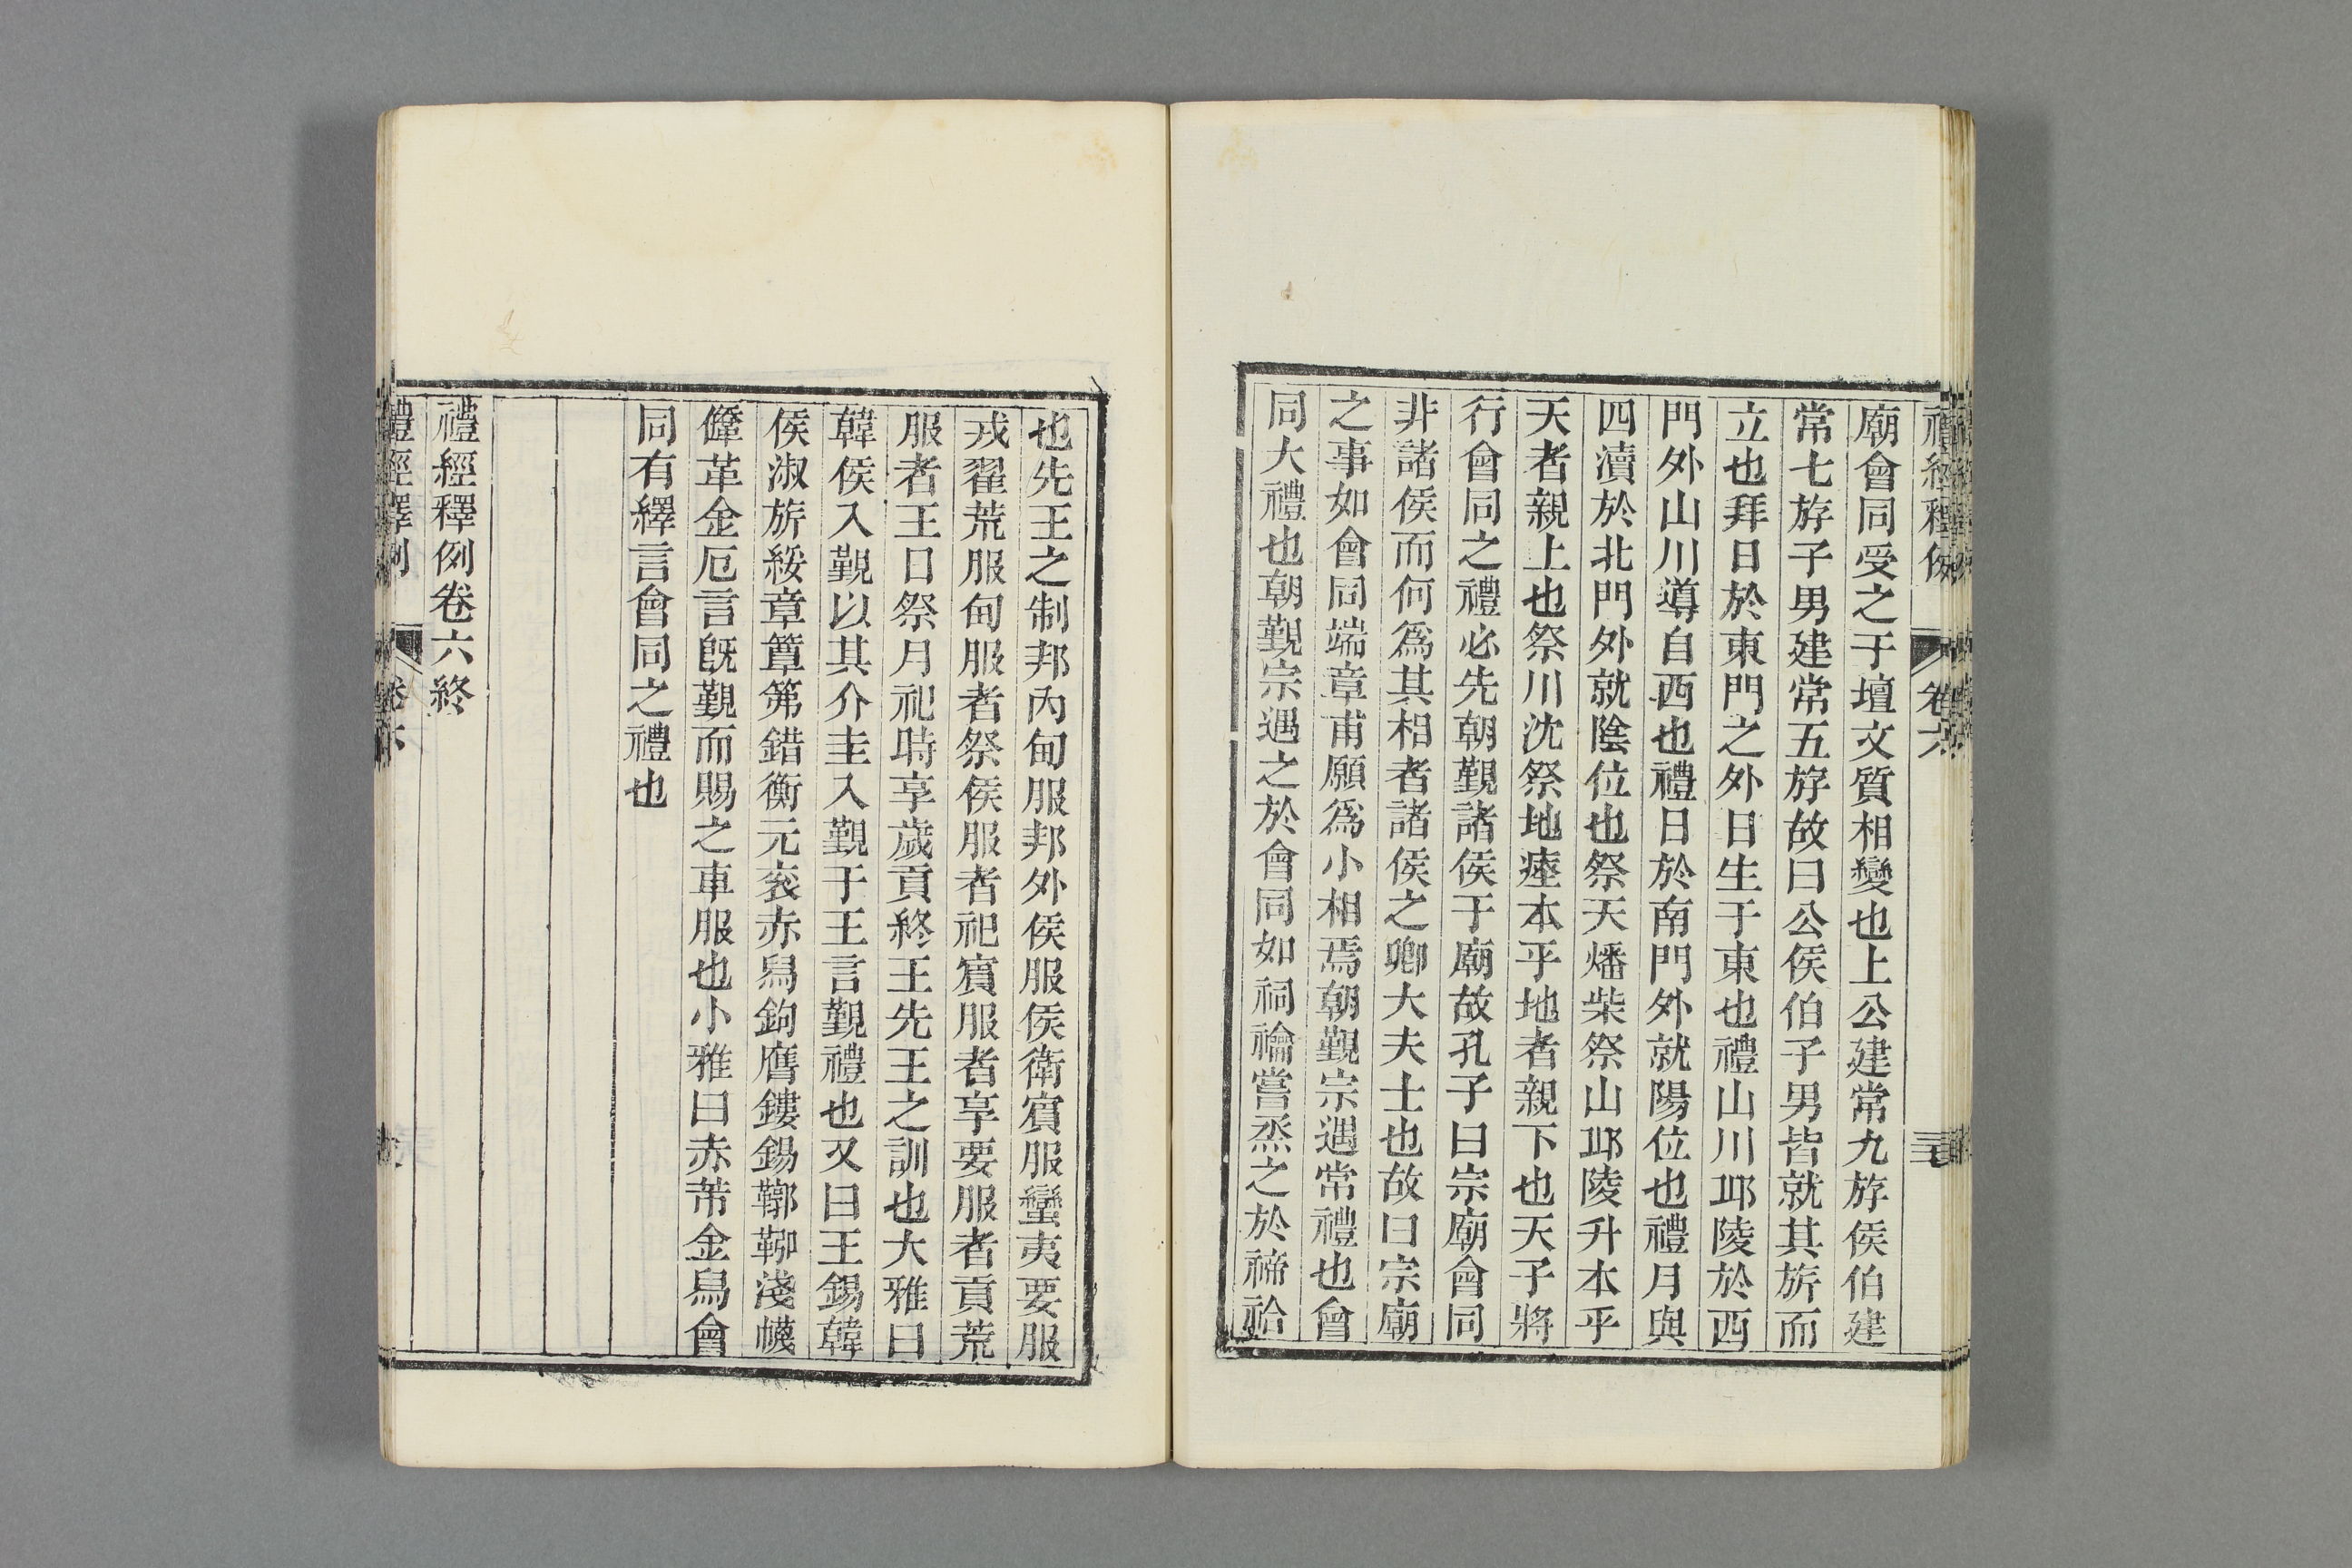 禮經釋例 卷六
廟會同受之于壇文質相變也上公建常九斿侯伯建
常七斿子男建常五斿故曰公侯伯子男皆就其旂而
立也拜日於東門之外日生于東也禮山川邱陵於西
門外山川導自西也禮日於南門外就陽位也禮月與
四瀆於北門外就陰位也祭天燔柴祭山邱陵升本乎
天者親上也祭川沈祭地瘞本乎地者親下也天子將
行會同之禮必先朝覲諸侯于廟故孔子曰宗廟會同
非諸侯而何爲其相者諸侯之卿大夫士也故曰宗廟
之事如會同端章甫願爲小相焉朝覲宗遇常禮也會
同大禮也朝覲宗遇之於會同如祠禴嘗烝之於禘祫
也先王之制邦內甸服邦外侯服侯衛賓服蠻夷要服
戎翟荒服甸服者祭侯服者祀賓服者享要服者貢荒
服者王日祭月祀時享歲貢終王先王之訓也大雅曰
韓侯入覲以其介圭入覲于王言覲禮也又曰王錫韓
侯淑旂綏章簟笰錯衡元衮赤舄鉤膺鏤錫鞹鞃淺幭
鞗革金厄言旣覲而賜之車服也小雅曰赤芾金舄會
同有繹言會同之禮也
禮經釋例卷六終
禮經釋例 卷六